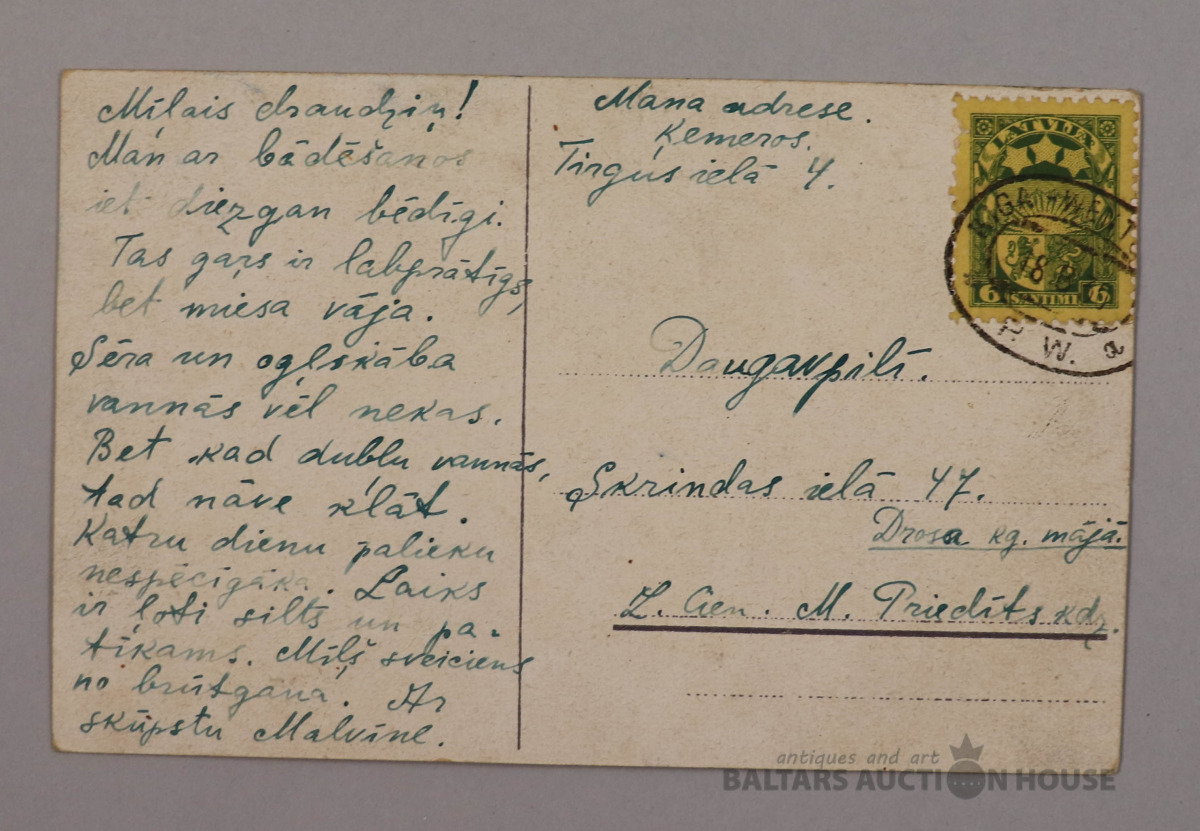 Mīļais draudziņ!
Man ar bādēšanos
iet diezgan bēdīgi.
Tas gars ir labprātīgs,
bet miesa vāja.
Sēra un ogļskāba
vannās vēl nekas.
Bet kad dubļu vannās,
tad nāve klāt.
Katru dienu palieku
nespēcīgāka. Laiks
ir ļoti silts un pa-
tīkams. Mīļš sveiciens
no brūtgana. Ar
skūpstu Malvīne.
Mana adrese.
Ķemeros.
Tirgus ielā 4.
LATVIJA
6 SANTIMI 6
RIGA
18
P. W. a
Daugavpilī.
Skrindas ielā 47.
Drosa kg. mājā.
L. Cien. M. Priedīts kdz.
antiques and art
BALTARS AUCTION HOUSE